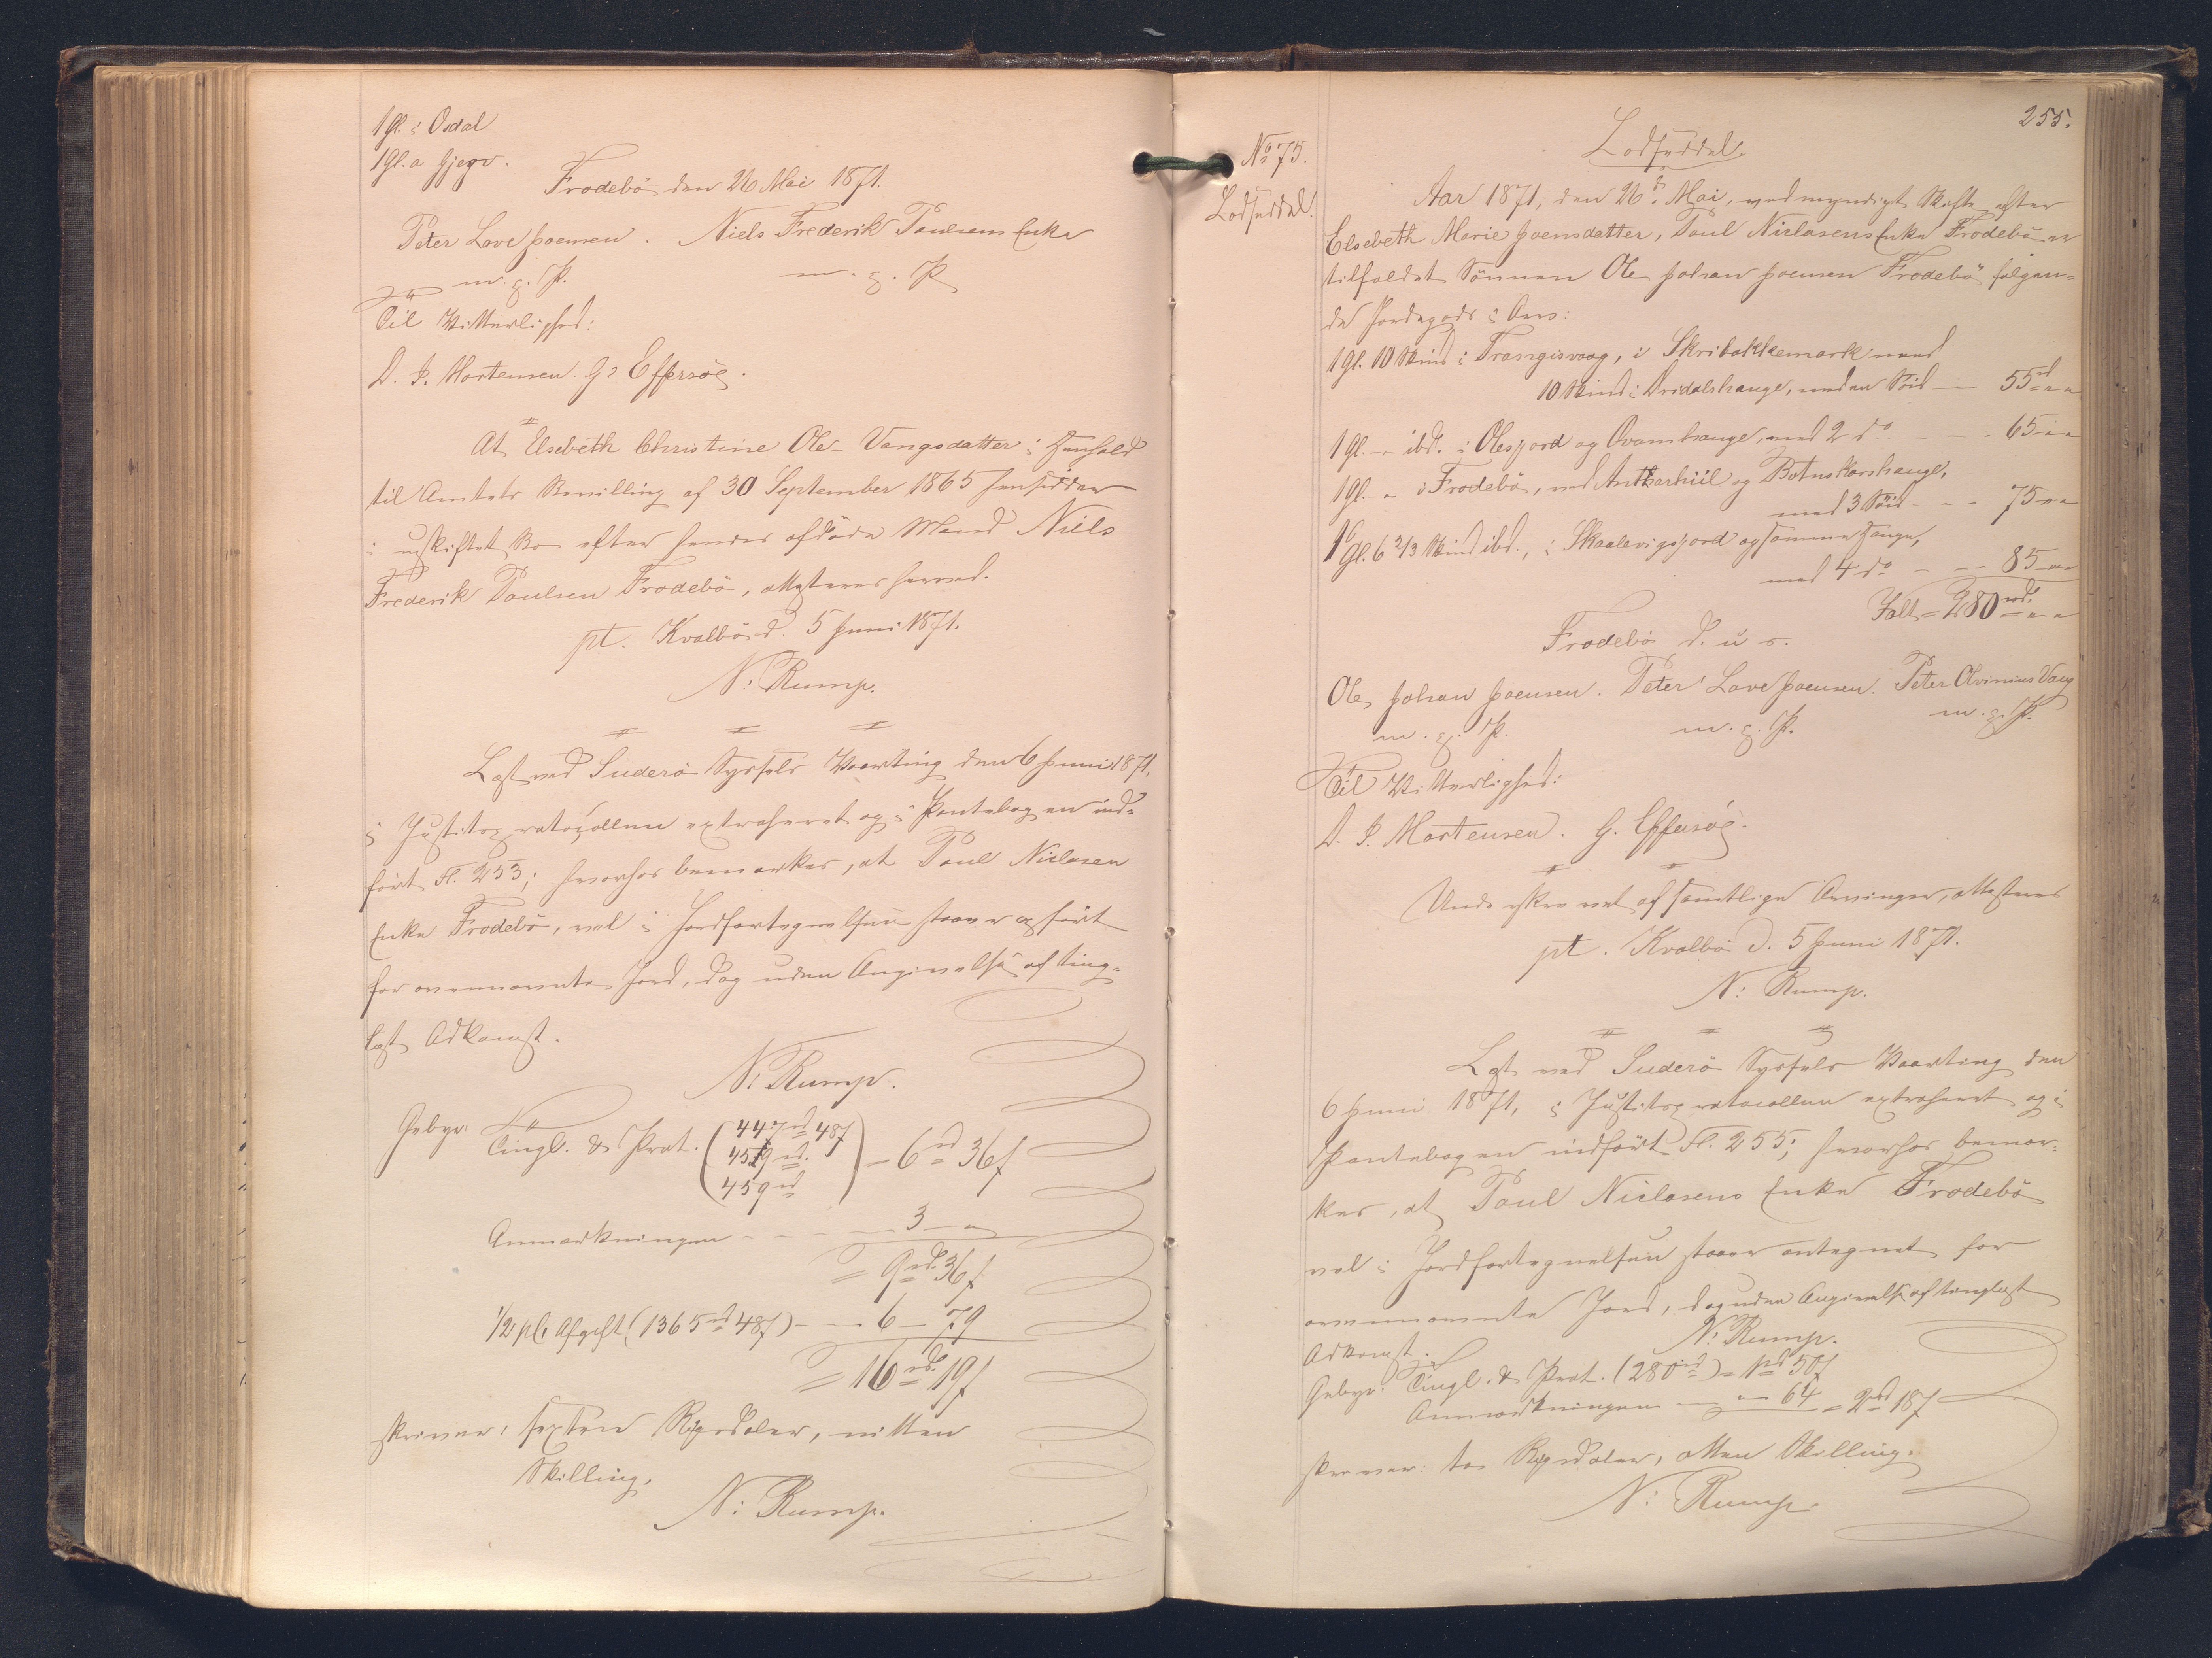 1 Gl. i Osdal
1 Gl. a Gjegv.
Frodebö den 26 Mai 1871.
Peter Love Joensen. Niels Frederik Paulsens Enke
m. g. P. m. g. P
Til Vitterlighed:
D. J. Mortensen. G: Effersöe.
At Elsebeth Christine Ole-Vangsdatter i Henhold
til Amtets Bevilling af 30 September 1865 hensidder
i uskiftet Bo efter hendes afdöde Mand Niels
Frederik Paulsen Frodebö, attesteres herved.
pt. Kvalbö d. 5 Juni 1871.
N: Rump.
Læst ved Suderö Syssels Vaarting den 6 Juni 1871,
i Justitsprotocollen extraheret og i Pantebogen ind-
fört Fl. 253; hvorhos bemærkes, at Paul Niclasen
Enke Frodebö, vel i Jordfortegnelsen staaer opfört
for ovennævnte Jord, dog uden Angivelse af ting-
læst Adkomst.
N: Rump.
Gebyr: Tingl. & Prot. (447 rd 48 f
459 rd.
459 rd) = 6 rd 36 f
Anmærkningen - - - 3 - "
= 9 rd. 36 f
1/2 pCt Afgift (1365 rd 48 f) - - 6 - 79
= 16 rd. 19 f
skriver: sexten Rigsdaler, nitten
Skilling.
N: Rump.
255.
No 75.
Lodseddel.
Lodseddel.
Aar 1871, den 26de Mai, ved myndigt Skifte efter
Elsebeth Marie Joensdatter, Paul Niclasens Enke Frodebö er
tilfaldet Sönnen Ole Johan Joensen Frodebö fölgen-
de Jordegods i Arv:
1 Gl. 10 Skind i Trangisvaag, i Skribakkemark med
10 Skind i Dridalshauge, med en Söid - - 55 rd " "
1 Gl. - " ibd. i Olesjord og Ovamhauge, med 2 do - - - 65 " "
1 Gl. " i Frodebö, ved Antharhiil og Botnskorshauge,
med 3 Söid - - - 75 " "
1 Gl. 6 2/3 Skind ibd., i Skaalevigsjord og samme Hauge,
med 4 do - - - 85 " "
Ialt = 280 rd. " "
Frodebö d. u. s.
Ole Johan Joensen. Peter Love Joensen. Peter Olvinius Vang
m. g. P. m. g. P. m. g. P.
Til Vitterlighed:
D. J. Mortensen. G. Effersöe.
Underskrevet af samtlige Arvinger, attesteres
pt. Kvalbö d. 5 Juni 1871.
N: Rump.
Læst ved Suderö Syssels Vaarting den
6 Juni 1871, i Justitsprotocollen extraheret og i
Pantebogen indfört Fl. 255; hvorhos bemær-
kes, at Paul Niclasens Enke Frodebö
vel i Jordfortegnelsen staaer antegnet for
ovennævnte Jord, dog uden Angivelse af tinglæst
Adkomst.
N: Rump.
Gebyr: Tingl. & Prot. (280 rd) = 1 rd 50 f
Anmærkningen - - " 64 = 2 rd 18 f
skriver: to Rigsdaler, atten Skilling.
N: Rump.